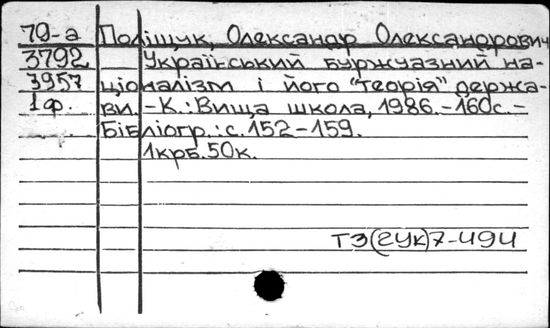 70-а Поліщук, Олександр Олександрович
3792 Український буржуазний на-
3957 ціоналізм і його "теорія" держа-
1ф. ви.-К.: Вища школа, 1986.-160с.-
Бібліогр.: с.152-159.
1крб.50к.
Т3(2Ук)7-494